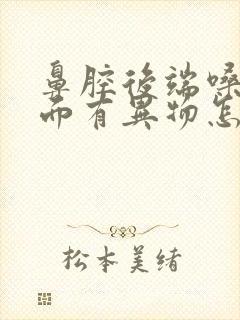 鼻腔後端嗓
而有異物怎
松本美緒